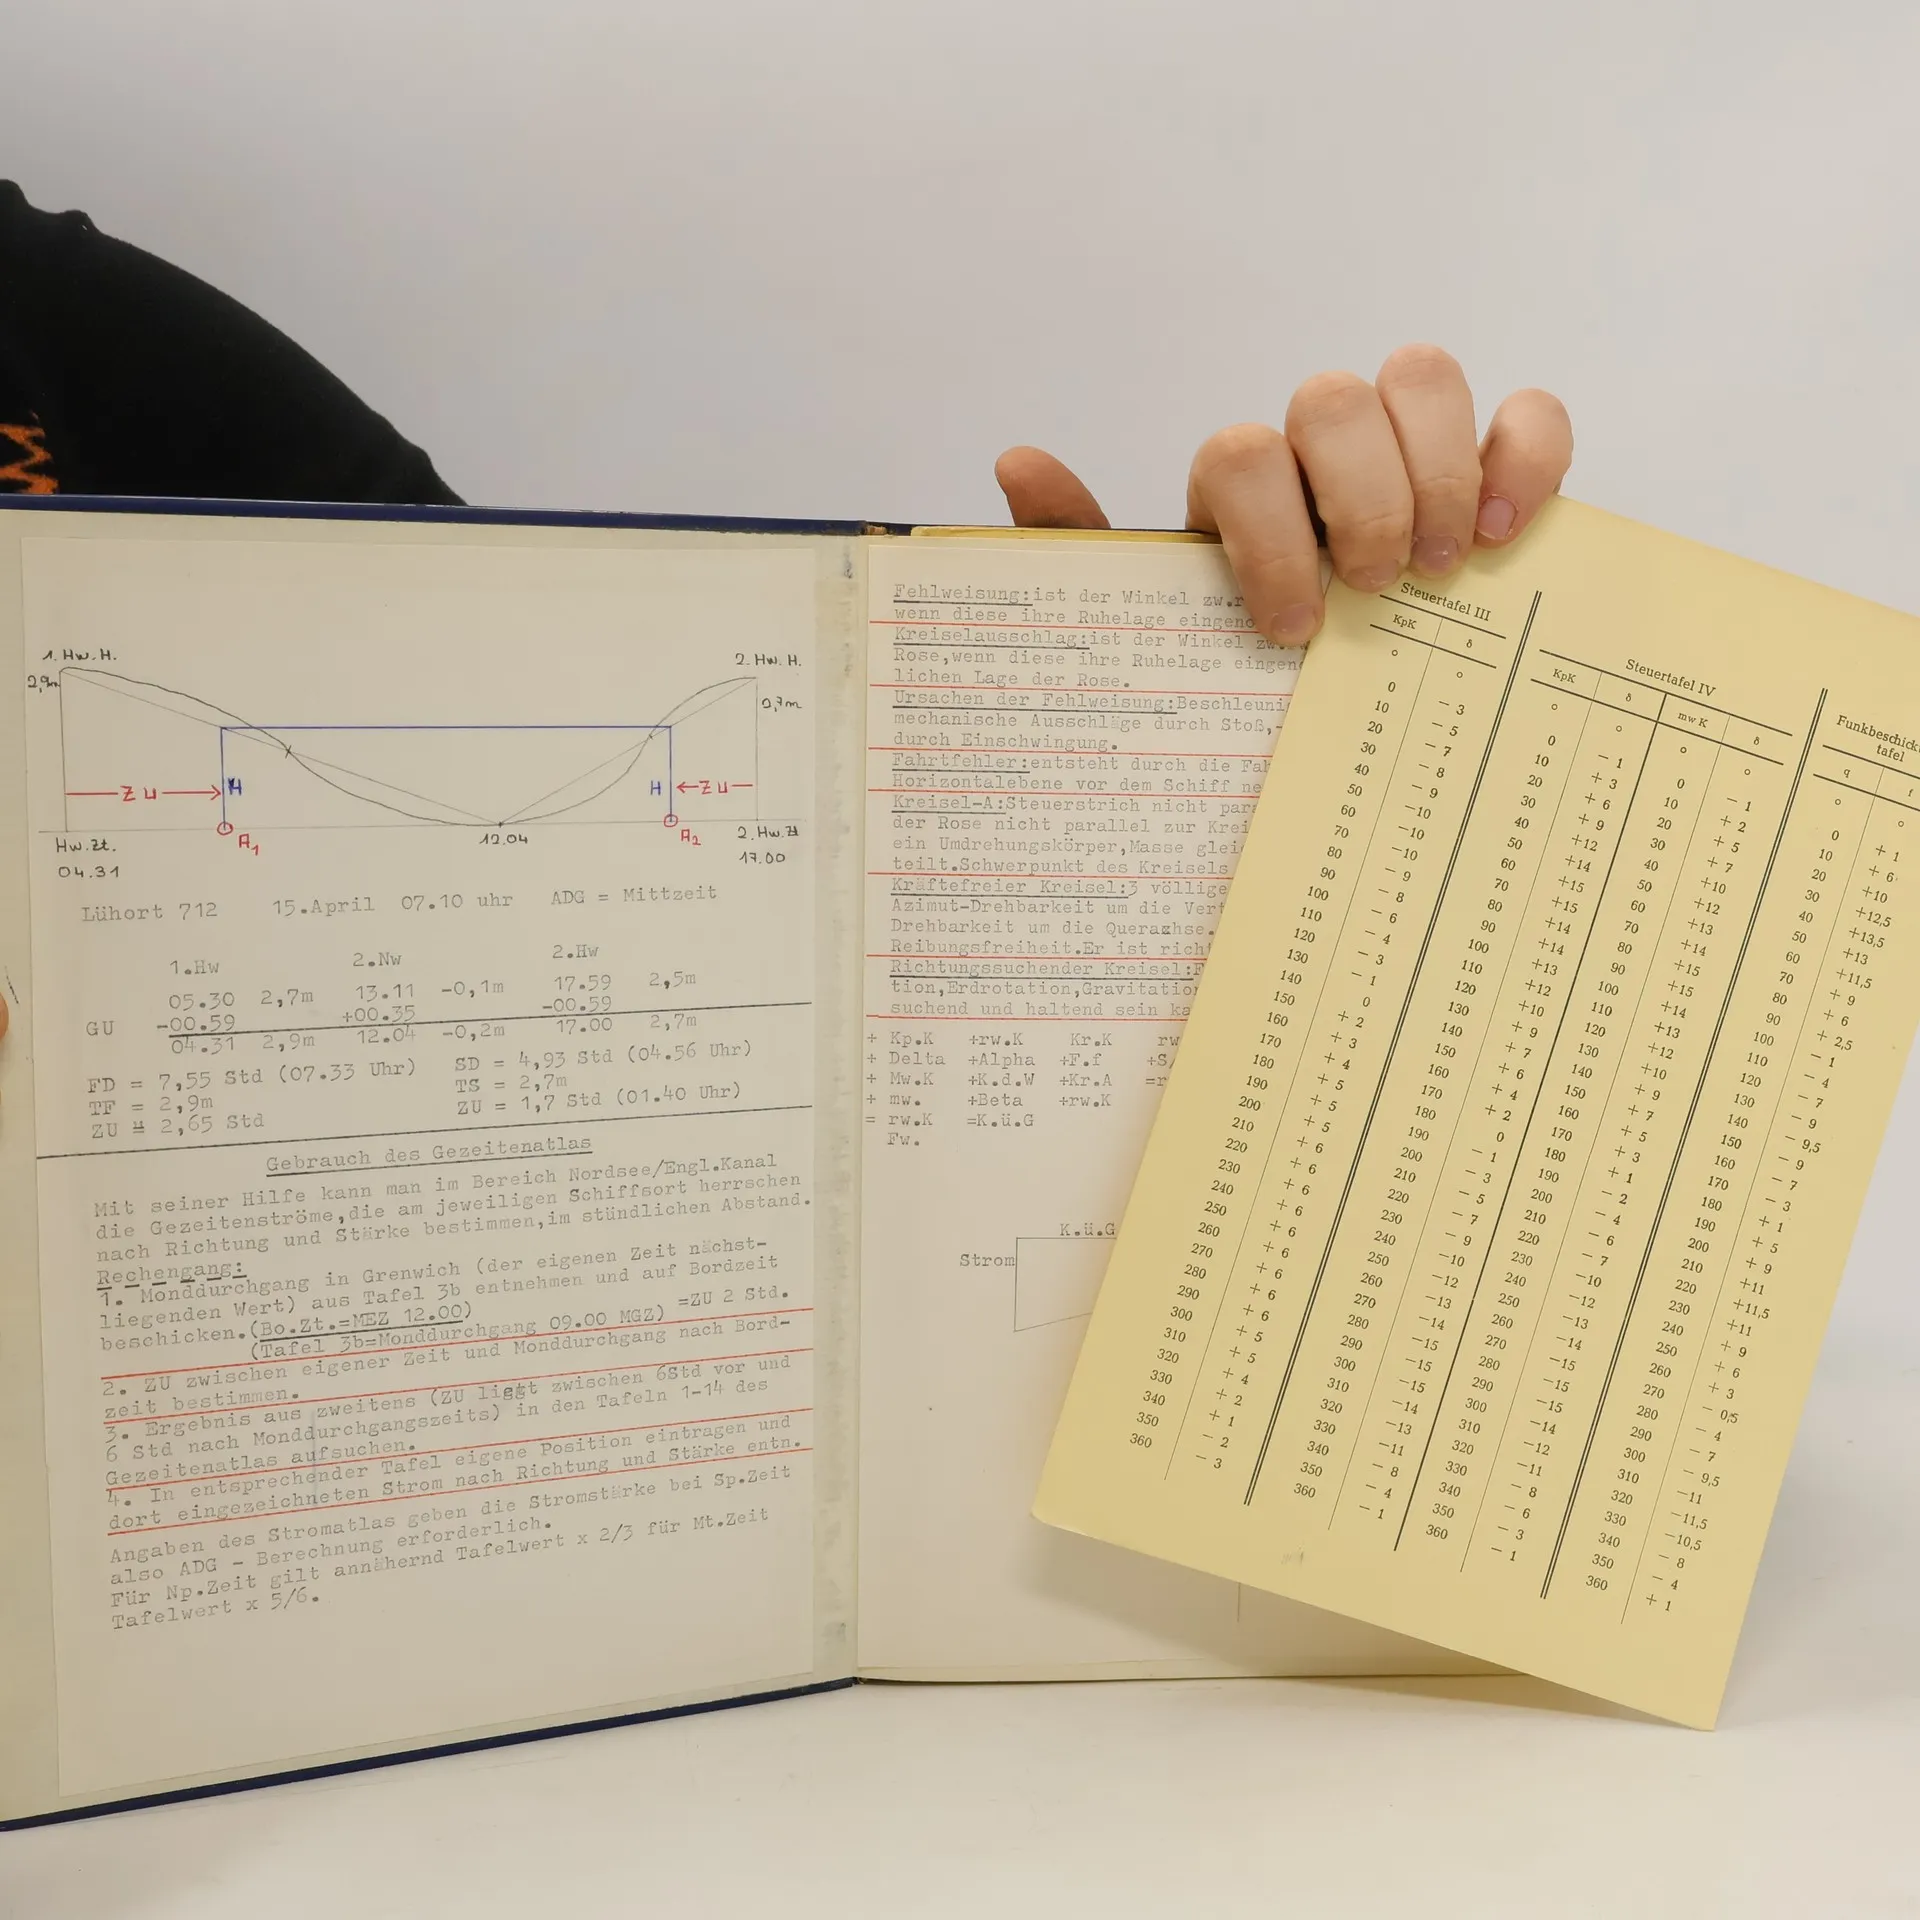 1. Hw. H.
2. Hw. H.
2,9m
2,7m
Z U
H
H
Z U
A1
12.04
A2
Hw.Zt.
2. Hw.Zt
04.31
17.00
Lühort 712 15.April 07.10 uhr ADG = Mittzeit
1.Hw 2.Nw 2.Hw
05.30 2,7m 13.11 -0,1m 17.59 2,5m
GU -00.59 +00.35 -00.59
04.31 2,9m 12.04 -0,2m 17.00 2,7m
FD = 7,55 Std (07.33 Uhr) SD = 4,93 Std (04.56 Uhr)
TF = 2,9m TS = 2,7m
ZU = 2,65 Std ZU = 1,7 Std (01.40 Uhr)
Gebrauch des Gezeitenatlas
Mit seiner Hilfe kann man im Bereich Nordsee/Engl.Kanal
die Gezeitenströme,die am jeweiligen Schiffsort herrschen
nach Richtung und Stärke bestimmen,im stündlichen Abstand.
Rechengang:
1. Monddurchgang in Grenwich (der eigenen Zeit nächst-
liegenden Wert) aus Tafel 3b entnehmen und auf Bordzeit
beschicken.(Bo.Zt.=MEZ 12.00)
(Tafel 3b=Monddurchgang 09.00 MGZ) =ZU 2 Std.
2. ZU zwischen eigener Zeit und Monddurchgang nach Bord-
zeit bestimmen.
3. Ergebnis aus zweitens (ZU liegt zwischen 6Std vor und
6 Std nach Monddurchgangszeits) in den Tafeln 1-14 des
Gezeitenatlas aufsuchen.
4. In entsprechender Tafel eigene Position eintragen und
dort eingezeichneten Strom nach Richtung und Stärke entn.
Angaben des Stromatlas geben die Stromstärke bei Sp.Zeit
also ADG - Berechnung erforderlich.
Für Np.Zeit gilt annähernd Tafelwert x 2/3 für Mt.Zeit
Tafelwert x 5/6.
Fehlweisung:ist der Winkel zw.r
wenn diese ihre Ruhelage eingeno
Kreiselausschlag:ist der Winkel zw.
Rose,wenn diese ihre Ruhelage eingen
lichen Lage der Rose.
Ursachen der Fehlweisung:Beschleuni
mechanische Ausschläge durch Stoß,-
durch Einschwingung.
Fahrtfehler:entsteht durch die Fah
Horizontalebene vor dem Schiff ne
Kreisel-A:Steuerstrich nicht para
der Rose nicht parallel zur Krei
ein Umdrehungskörper,Masse glei
teilt.Schwerpunkt des Kreisels
Kräftefreier Kreisel:3 völlige
Azimut-Drehbarkeit um die Vert
Drehbarkeit um die Querazhse.
Reibungsfreiheit.Er ist rich
Richtungssuchender Kreisel:F
tion,Erdrotation,Gravitation
suchend und haltend sein ka
+ Kp.K +rw.K Kr.K rw
+ Delta +Alpha +F.f +S/
+ Mw.K +K.d.W +Kr.A =r
+ mw. +Beta +rw.K
= rw.K =K.ü.G
Fw.
K.ü.G
Strom
Steuertafel III
KpK δ
° °
0 - 3
10 - 5
20 - 7
30 - 8
40 - 9
50 -10
60 -10
70 -10
80 - 9
90 - 8
100 - 6
110 - 4
120 - 3
130 - 1
140 0
150 + 2
160 + 3
170 + 4
180 + 5
190 + 5
200 + 5
210 + 6
220 + 6
230 + 6
240 + 6
250 + 6
260 + 6
270 + 6
280 + 6
290 + 6
300 + 5
310 + 5
320 + 4
330 + 2
340 + 1
350 - 2
360 - 3
Steuertafel IV
KpK δ mw K δ
° ° ° °
0 - 1 0 - 1
10 + 3 10 + 2
20 + 6 20 + 5
30 + 9 30 + 7
40 +12 40 +10
50 +14 50 +12
60 +15 60 +13
70 +15 70 +14
80 +14 80 +15
90 +14 90 +15
100 +13 100 +14
110 +12 110 +13
120 +10 120 +12
130 + 9 130 +10
140 + 7 140 + 9
150 + 6 150 + 7
160 + 4 160 + 5
170 + 2 170 + 3
180 0 180 + 1
190 - 1 190 - 2
200 - 3 200 - 4
210 - 5 210 - 6
220 - 7 220 - 7
230 - 9 230 -10
240 -10 240 -12
250 -12 250 -13
260 -13 260 -14
270 -14 270 -15
280 -15 280 -15
290 -15 290 -15
300 -15 300 -14
310 -14 310 -12
320 -13 320 -11
330 -11 330 - 8
340 - 8 340 - 6
350 - 4 350 - 3
360 - 1 360 - 1
Funkbeschick
tafel
q f
° °
0 + 1
10 + 6
20 +10
30 +12,5
40 +13,5
50 +13
60 +11,5
70 + 9
80 + 6
90 + 2,5
100 - 1
110 - 4
120 - 7
130 - 9
140 - 9,5
150 - 9
160 - 7
170 - 3
180 + 1
190 + 5
200 + 9
210 +11
220 +11,5
230 +11
240 + 9
250 + 6
260 + 3
270 - 0,5
280 - 4
290 - 7
300 - 9,5
310 -11
320 -11,5
330 -10,5
340 - 8
350 - 4
360 + 1